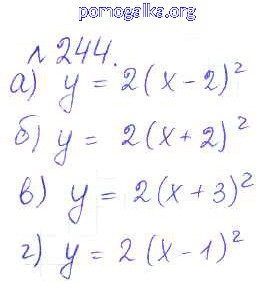 pomogalka.org
№ 244.
а) y = 2(x - 2)²
б) y = 2(x + 2)²
в) y = 2(x + 3)²
г) y = 2(x - 1)²